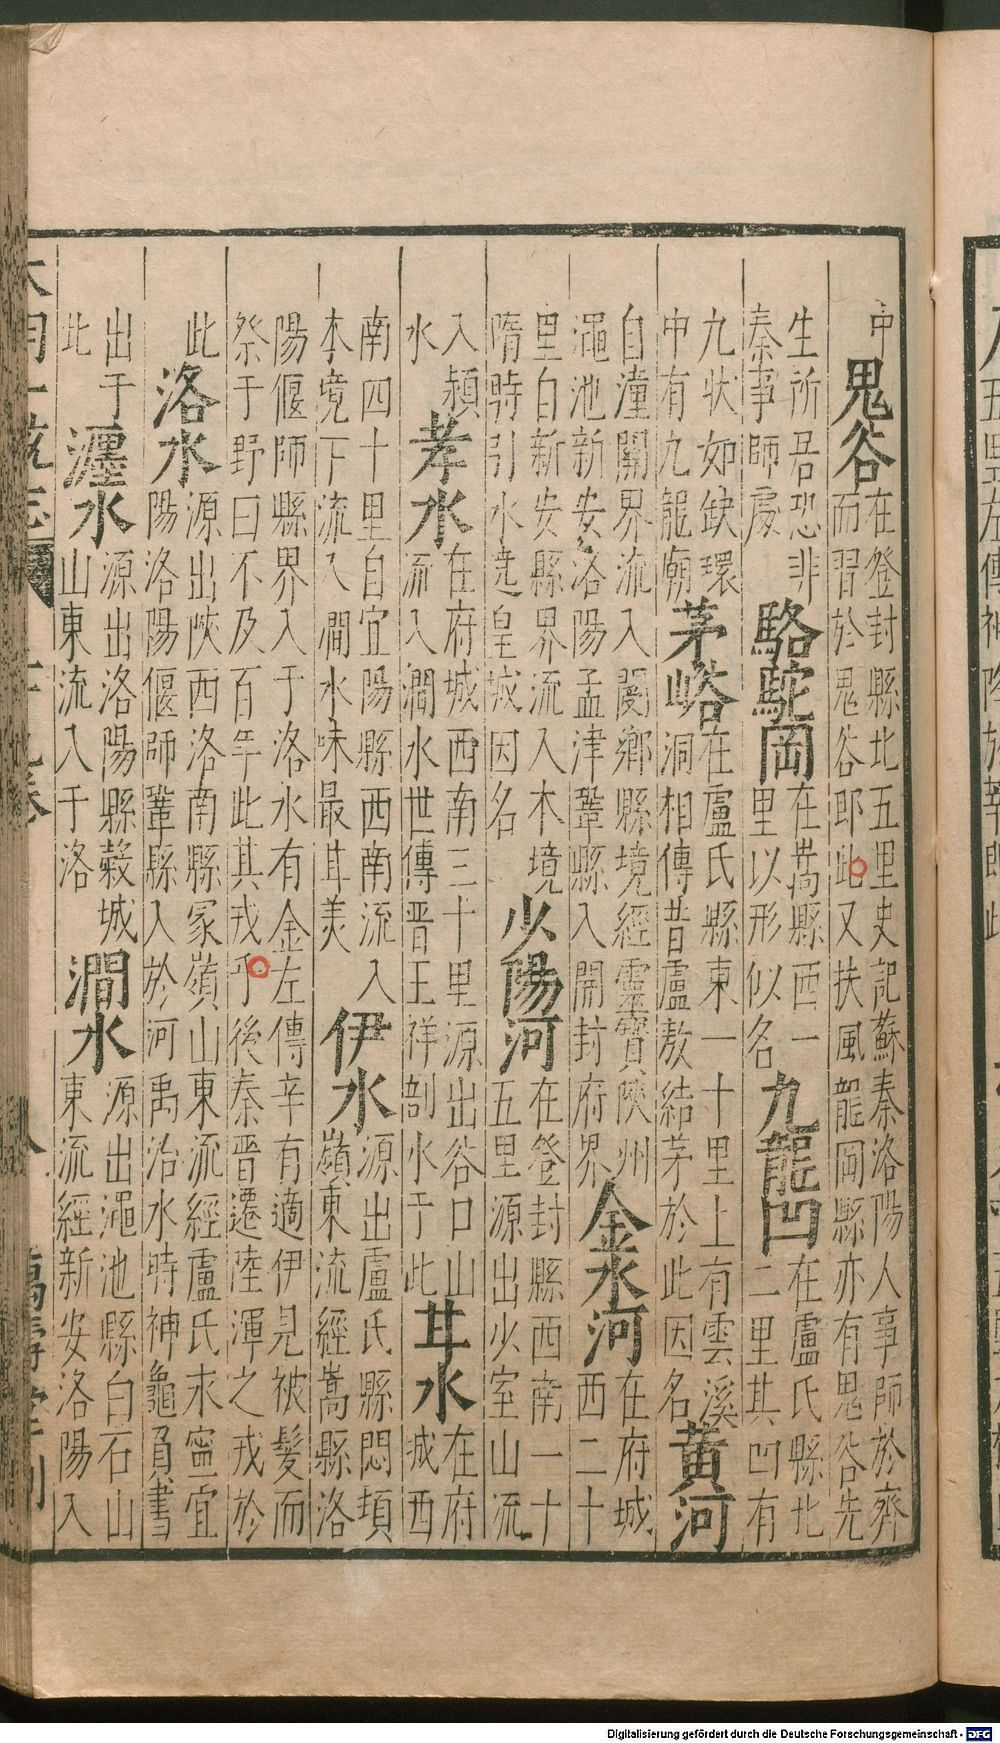 中
鬼谷
在登封縣北五里史記蘇秦洛陽人事師於齊
而習於鬼谷郎此又扶風龍岡縣亦有鬼谷先
生所居恐非
秦事師處
駱駝岡
在嵩縣西一
里以形似名
九龍凹
在盧氏縣北
二里其凹有
九狀如缺環
中有九龍廟
茅峪
在盧氏縣東一十里上有雲溪
洞相傳昔盧敖結茅於此因名
黃河
自潼關界流入閿鄉縣境經靈寶陝州
澠池新安洛陽孟津鞏縣入開封府界
金水河
在府城
西二十
里自新安縣界流入本境
隋時引水遶皇城因名
少陽河
在登封縣西南一十
五里源出少室山流
入潁
水
孝水
在府城西南三十里源出谷口山
流入澗水世傳晉王祥剖水于此
甘水
在府
城西
南四十里自宜陽縣西南流入
本境下流入澗水味最甘美
伊水
源出盧氏縣悶頓
嶺東流經嵩縣洛
陽偃師縣界入于洛水有金左傳辛有適伊見被髮而
祭于野曰不及百年此其戎乎後秦晉遷陸渾之戎於
此
洛水
源出陝西洛南縣冢嶺山東流經盧氏永寧宜
陽洛陽偃師鞏縣入於河禹治水時神龜負書
出于
此
瀍水
源出洛陽縣穀城
山東流入于洛
澗水
源出澠池縣白石山
東流經新安洛陽入
大明一統志 二十九卷 八 萬壽堂刊
Digitalisierung gefördert durch die Deutsche Forschungsgemeinschaft - DFG